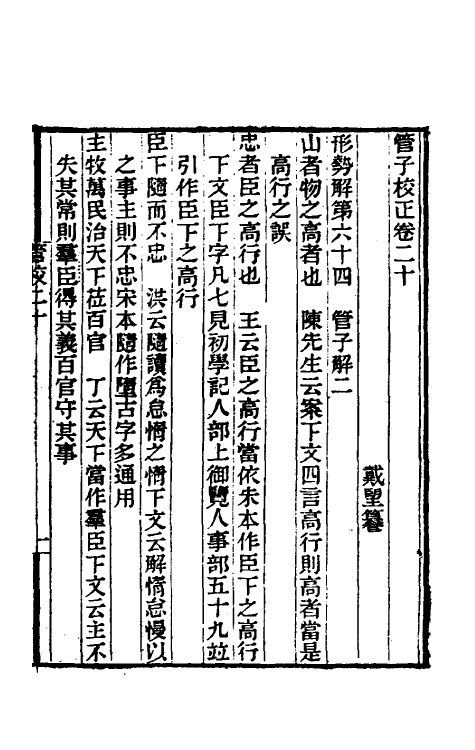 管子校正卷二十
戴望纂
形勢解第六十四　管子解二
山者物之高者也　陳先生云案下文四言高行則高者當是
高行之誤
忠者臣之高行也　王云臣之高行當依朱本作臣下之高行
下文臣下字凡七見初學記人部上御覽人事部五十九竝
引作臣下之高行
臣下隨而不忠　洪云隨讀爲怠惰之惰下文云解惰怠慢以
之事主則不忠宋本隨作墮古字多通用
主牧萬民治天下莅百官　丁云天下當作羣臣下文云主不
失其常則羣臣得其義百官守其事
管校二十
一